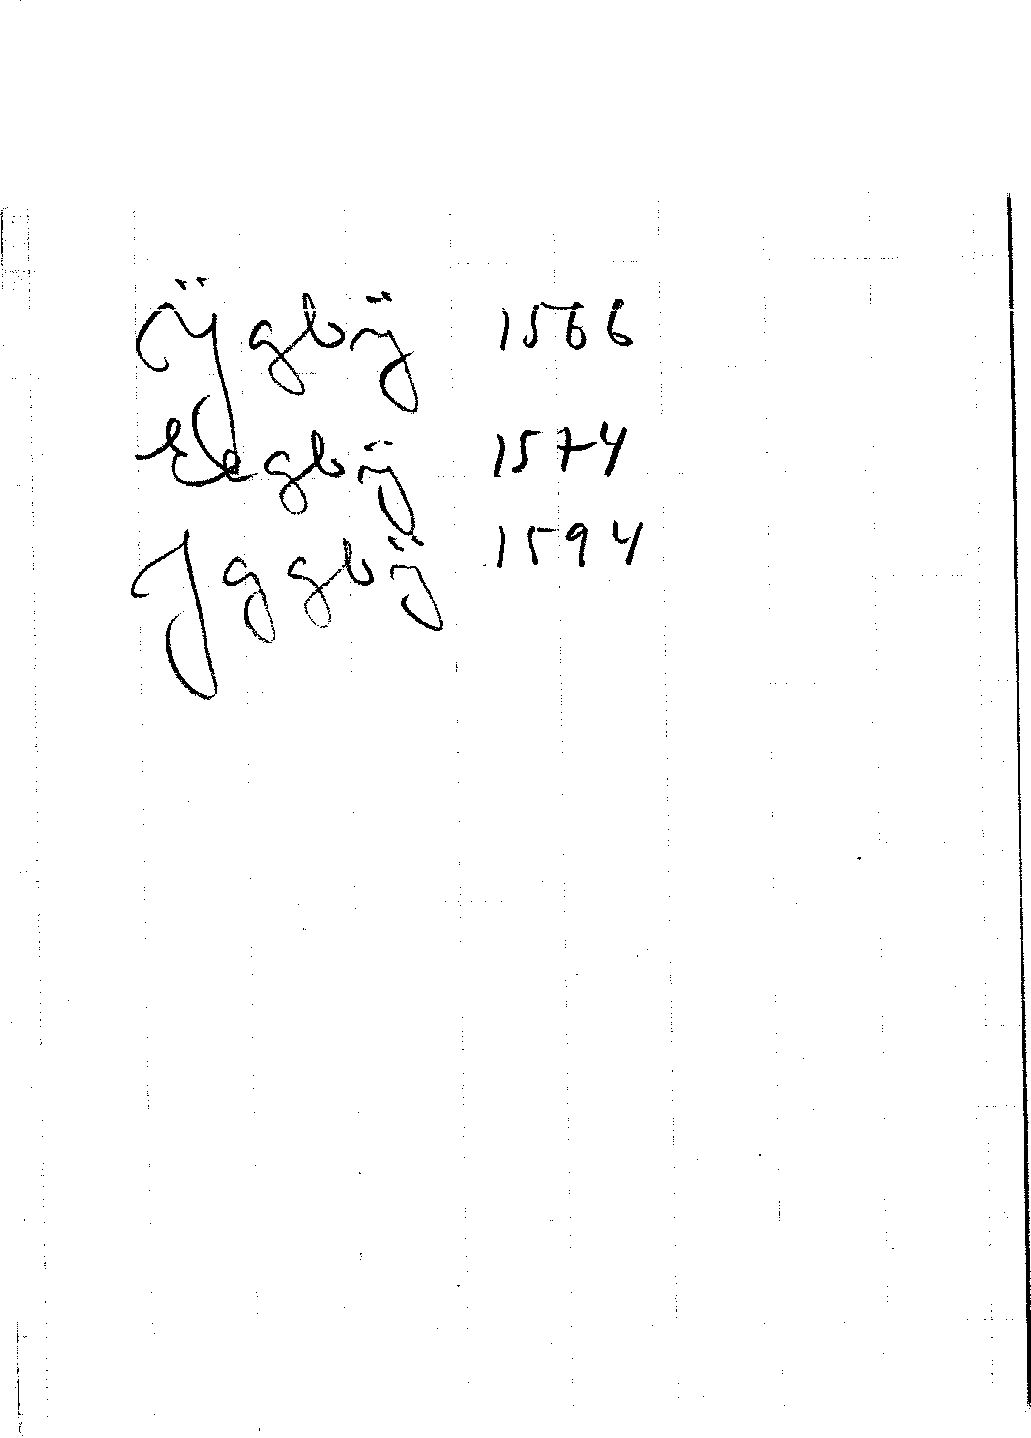 Ÿgbÿ 1566
Elegbÿ 1574
Jggbÿ 1594